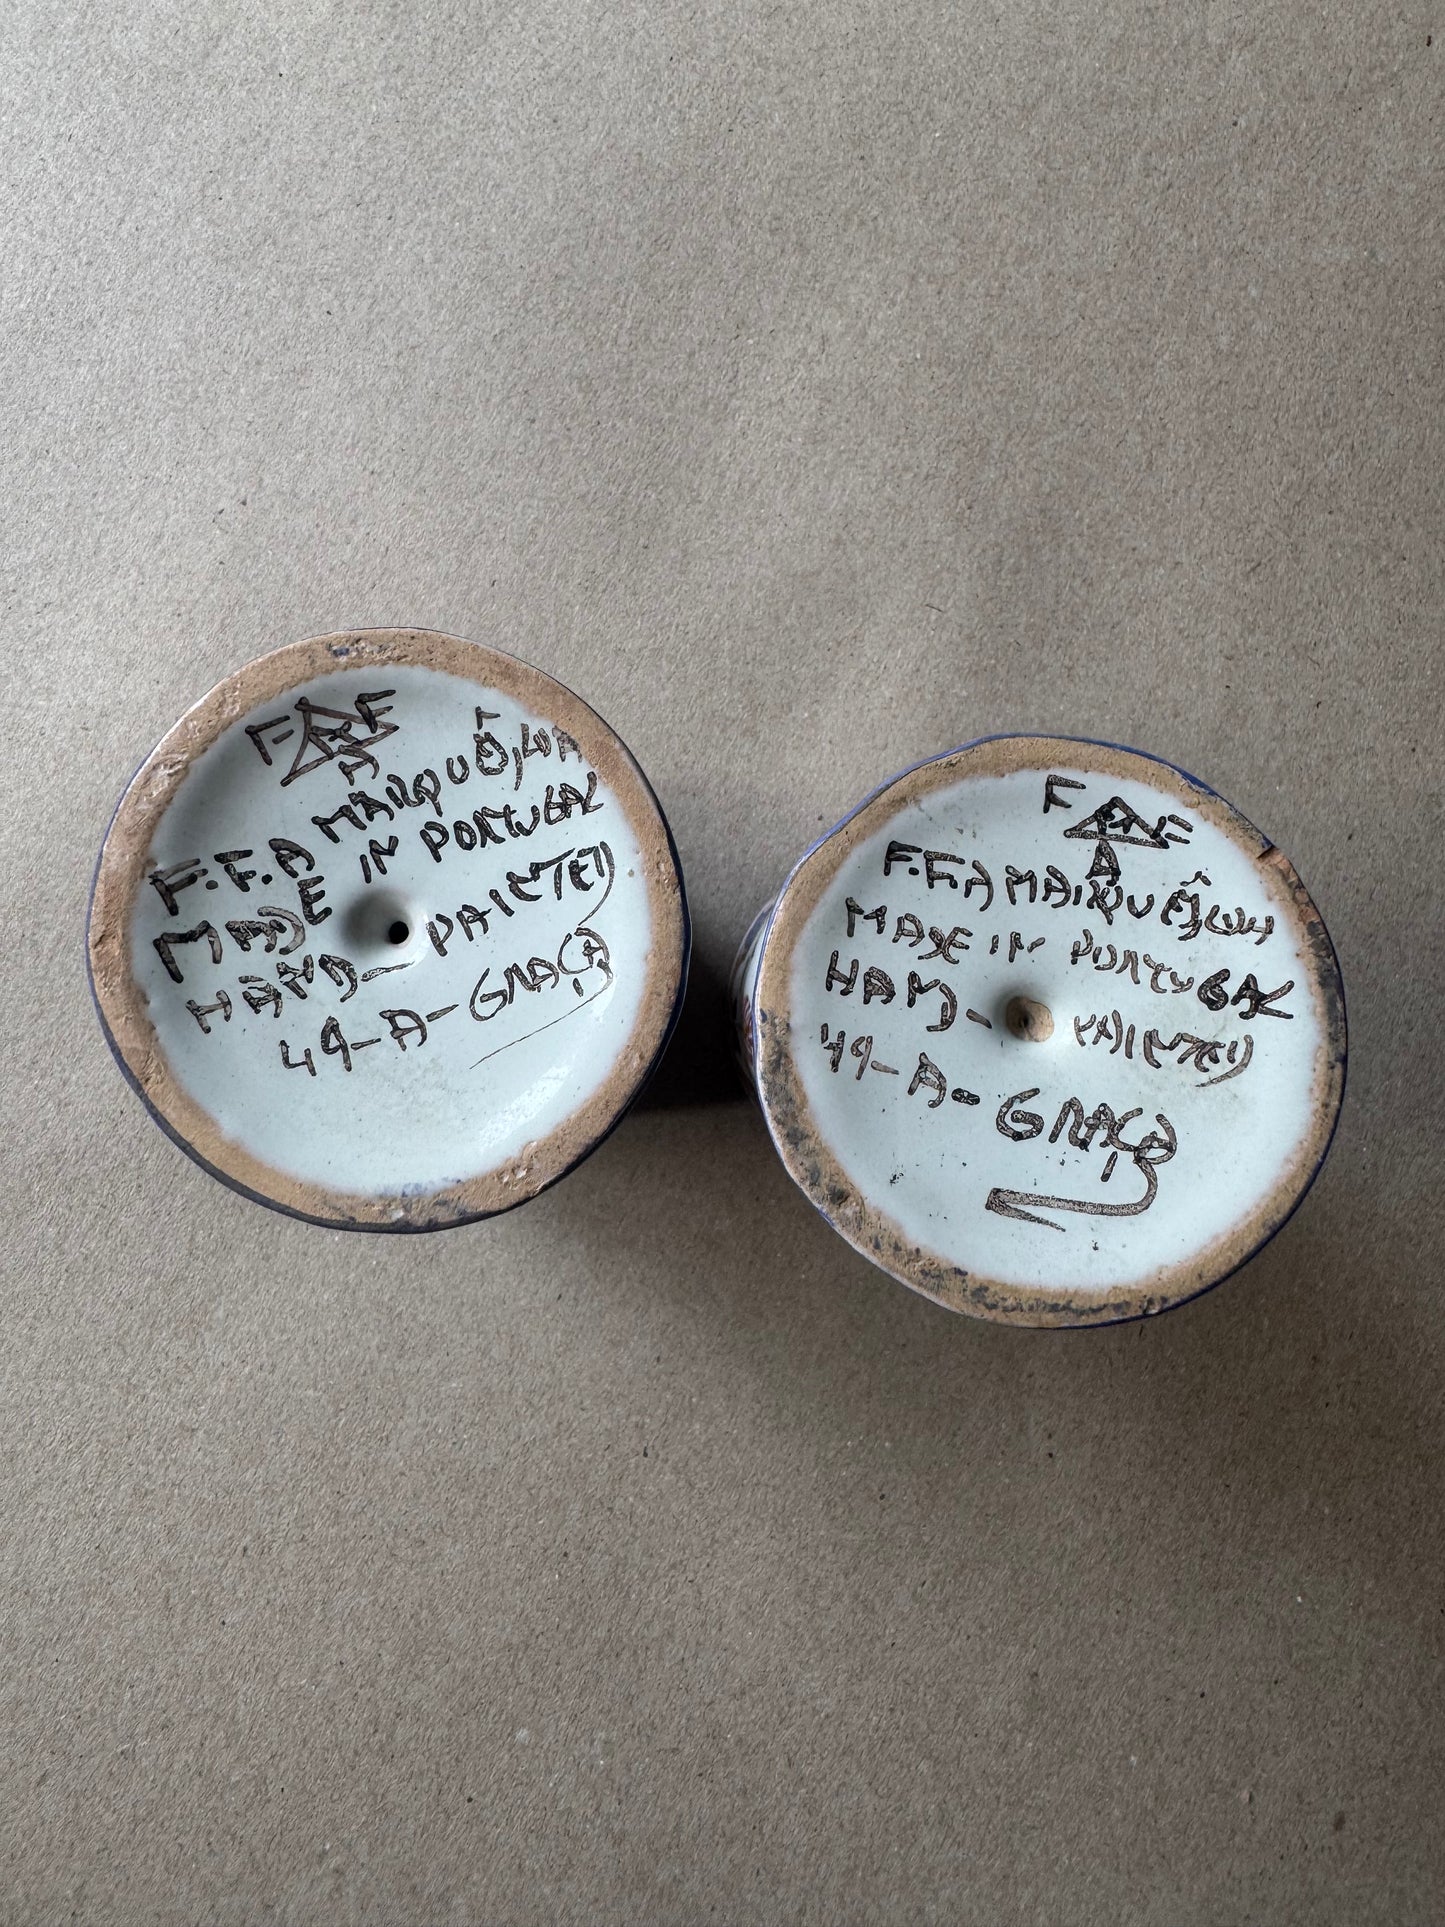 F F
A
F.F.A MAIRQUÊS, LDA
MADE IN PORTUGAL
HAND-PAINTED
49-A-GRAÇA
F F
A
F.F.A MAIRQUÊS
MADE IN PORTUGAL
HAND-PAINTED
49-A-GRAÇA